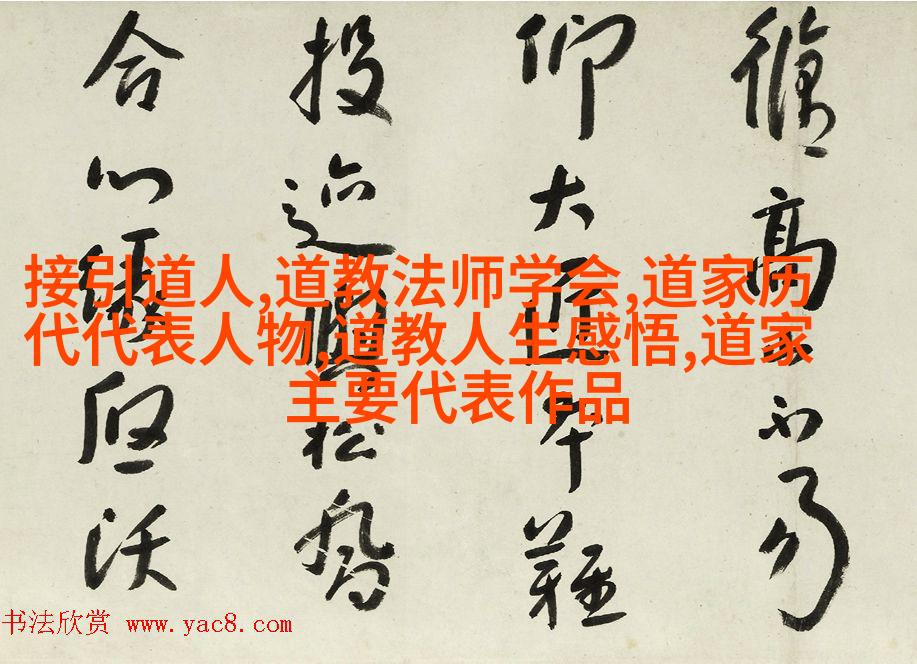 高不易
仰大難
投迹松喬
合心沃
接引道人,道教法师学会,道家历
代代表人物,道教人生感悟,道家
主要代表作品
书法欣赏 www.yac8.com